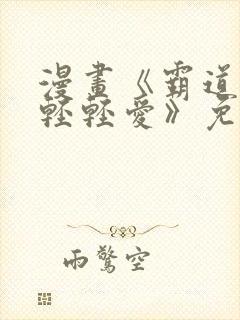 漫畫《霸道
輕輕愛》免
雨驚空